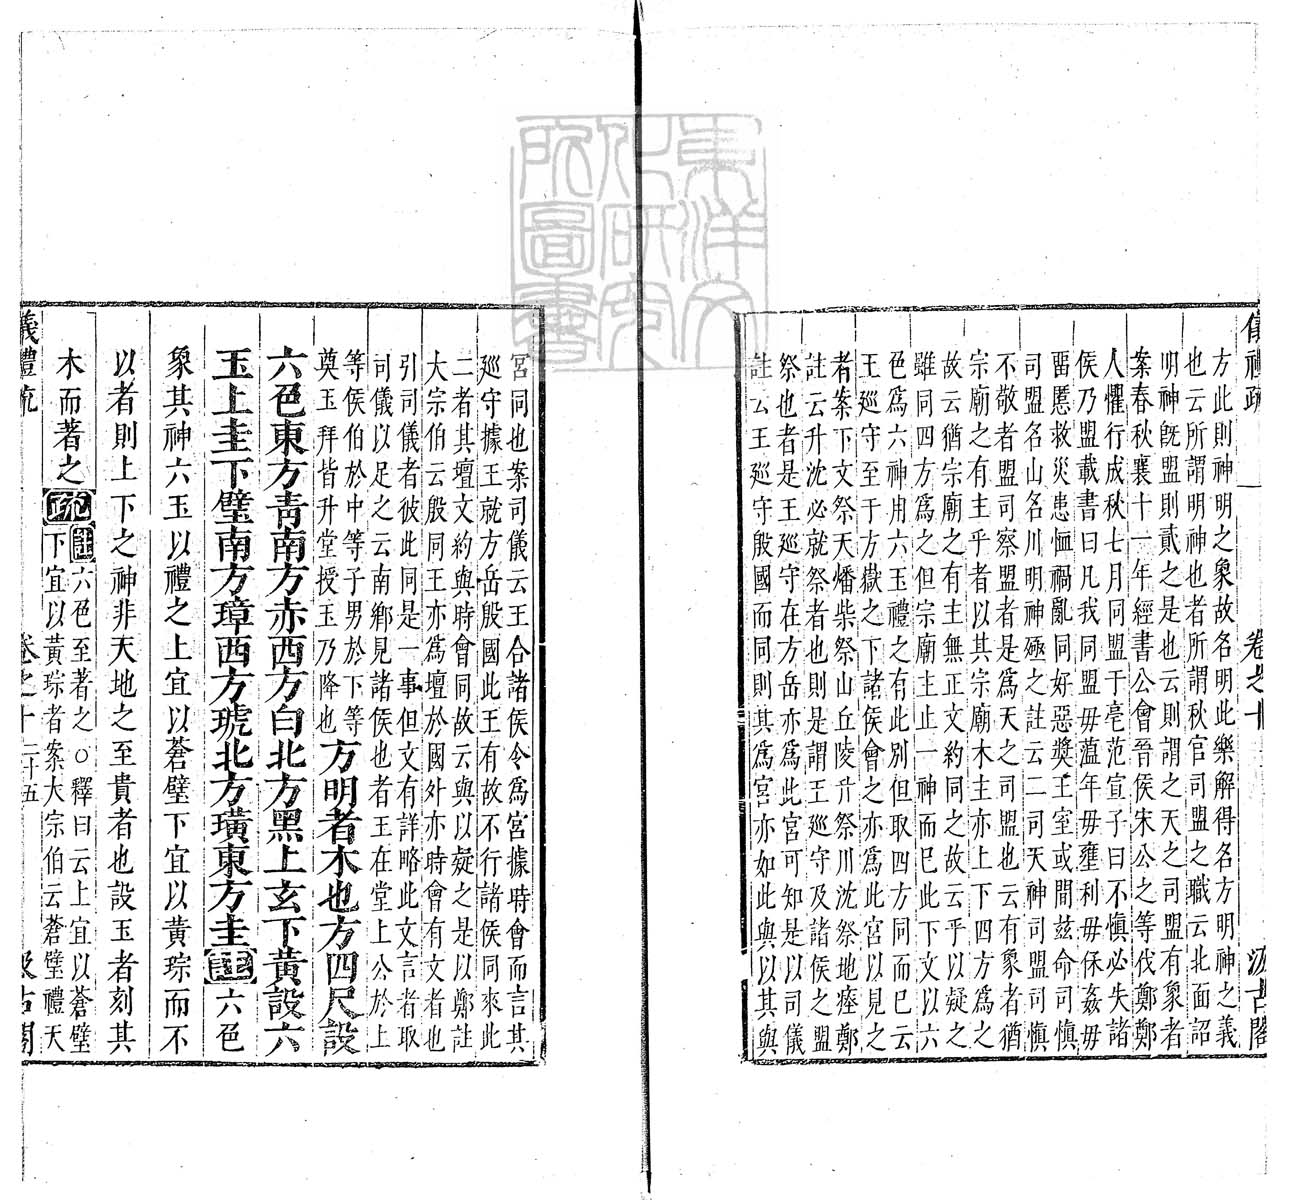 儀禮疏 卷之十 汲古閣
方此則神明之象故名明此樂解得名方明神之義
也云所謂明神也者所謂秋官司盟之職云北面詔
明神旣盟則貳之是也云則謂之天之司盟有象者
案春秋襄十一年經書公會晉侯宋公之等伐鄭鄭
人懼行成秋七月同盟于亳范宣子曰不愼必失諸
侯乃盟載書曰凡我同盟毋蘊年毋壅利毋保姦毋
畱慝救災患恤禍亂同好惡奬王室或間茲命司愼
司盟名山名川明神殛之註云二司天神司盟司愼
不敬者盟司察盟者是爲天之司盟也云有象者猶
宗廟之有主乎者以其宗廟木主亦上下四方爲之
故云猶宗廟之有主無正文約同之故云乎以疑之
雖同四方爲之但宗廟主止一神而已此下文以六
色爲六神用六玉禮之有此別但取四方同而已云
王巡守至于方嶽之下諸侯會之亦爲此宮以見之
者案下文祭天燔柴祭山丘陵升祭川沈祭地瘞鄭
註云升沈必就祭者也則是謂王巡守及諸侯之盟
祭也者是王巡守在方岳亦爲此宮可知是以司儀
註云王巡守殷國而同則其爲宮亦如此與以其與
宮同也案司儀云王合諸侯令爲宮據時會而言其
巡守據王就方岳殷國此王有故不行諸侯同來此
二者其壇文約與時會同故云與以疑之是以鄭註
大宗伯云殷同王亦爲壇於國外亦時會有文者也
引司儀者彼此同是一事但文有詳略此文言者取
司儀以足之云南鄉見諸侯也者王在堂上公於上
等侯伯於中等子男於下等
奠玉拜皆升堂授玉乃降也
方明者木也方四尺設
六色東方靑南方赤西方白北方黑上玄下黃設六
玉上圭下璧南方璋西方琥北方璜東方圭註六色
象其神六玉以禮之上宜以蒼璧下宜以黃琮而不
以者則上下之神非天地之至貴者也設玉者刻其
木而著之疏註六色至著之○釋曰云上宜以蒼璧
下宜以黃琮者案大宗伯云蒼璧禮天
儀禮疏 卷之十 二十五 汲古閣
東洋文化研究所圖書